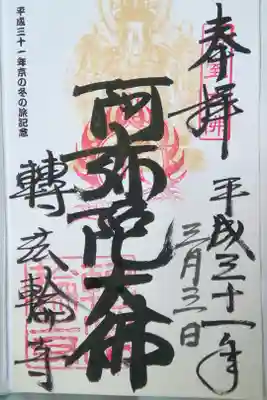 奉拝
平成三十一年
三月三日
阿弥陀大佛
轉法輪寺
平成三十一年京の冬の旅記念